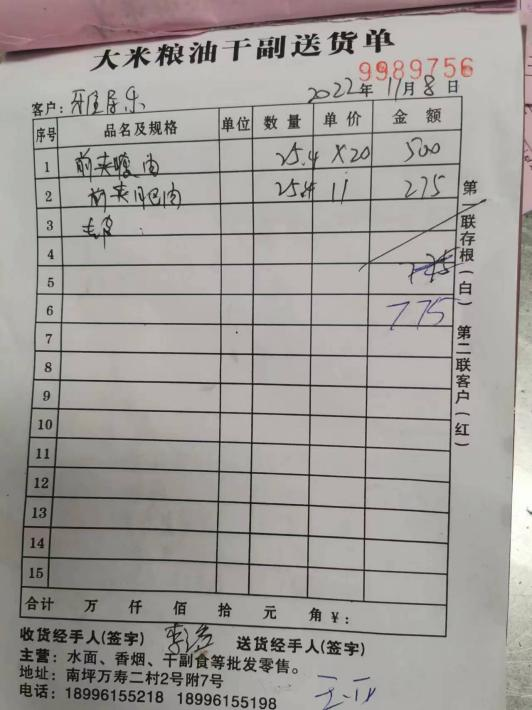 大米粮油干副送货单
9989756
客户: 2022年11月8日
序号 品名及规格 单位 数量 单价 金额
1 前夹瘦肉 25.4 X20 500
2 前夹肥肉 25.4 11 275
3 去皮
4
5 775
6 775
7
8
9
10
11
12
13
14
15
合计 万 仟 佰 拾 元 角 ¥:
第一联存根(白) 第二联客户(红)
收货经手人(签字) 送货经手人(签字)
主营: 水面、香烟、干副食等批发零售。
地址: 南坪万寿二村2号附7号
电话: 18996155218 18996155198